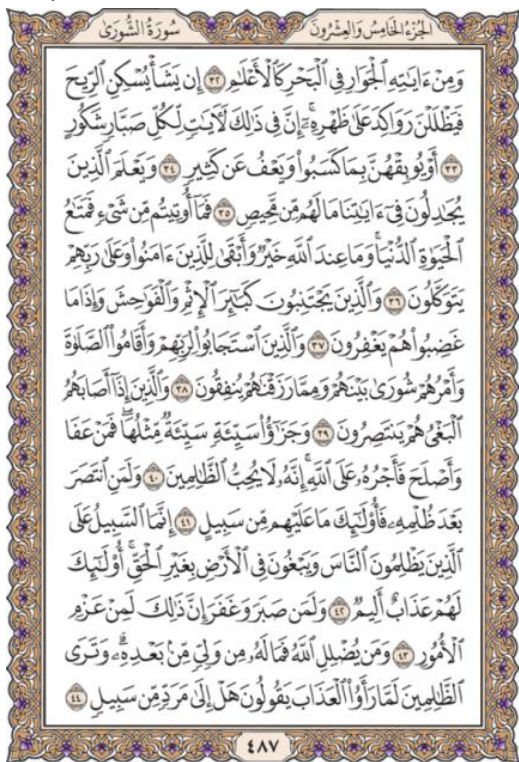 الجزء الخامس والعشرون سورة الشورى
وَمِنْ ءَايَٰتِهِ ٱلْجَوَارِ فِى ٱلْبَحْرِ كَٱلْأَعْلَٰمِ ٣٢ إِن يَشَأْ يُسْكِنِ ٱلرِّيحَ
فَيَظْلَلْنَ رَوَاكِدَ عَلَىٰ ظَهْرِهِۦٓ ۚ إِنَّ فِى ذَٰلِكَ لَءَايَٰتٍ لِّكُلِّ صَبَّارٍ شَكُورٍ
٣٣ أَوْ يُوبِقْهُنَّ بِمَا كَسَبُوا۟ وَيَعْفُ عَن كَثِيرٍ ٣٤ وَيَعْلَمَ ٱلَّذِينَ
يُجَٰدِلُونَ فِىٓ ءَايَٰتِنَا مَا لَهُم مِّن مَّحِيصٍ ٣٥ فَمَآ أُوتِيتُم مِّن شَىْءٍ فَمَتَٰعُ
ٱلْحَيَوٰةِ ٱلدُّنْيَا ۖ وَمَا عِندَ ٱللَّهِ خَيْرٌ وَأَبْقَىٰ لِلَّذِينَ ءَامَنُوا۟ وَعَلَىٰ رَبِّهِمْ
يَتَوَكَّلُونَ ٣٦ وَٱلَّذِينَ يَجْتَنِبُونَ كَبَٰٓئِرَ ٱلْإِثْمِ وَٱلْفَوَٰحِشَ وَإِذَا مَا
غَضِبُوا۟ هُمْ يَغْفِرُونَ ٣٧ وَٱلَّذِينَ ٱسْتَجَابُوا۟ لِرَبِّهِمْ وَأَقَامُوا۟ ٱلصَّلَوٰةَ
وَأَمْرُهُمْ شُورَىٰ بَيْنَهُمْ وَمِمَّا رَزَقْنَٰهُمْ يُنفِقُونَ ٣٨ وَٱلَّذِينَ إِذَآ أَصَابَهُمُ
ٱلْبَغْىُ هُمْ يَنتَصِرُونَ ٣٩ وَجَزَٰٓؤُا۟ سَيِّئَةٍ سَيِّئَةٌ مِّثْلُهَا ۖ فَمَنْ عَفَا
وَأَصْلَحَ فَأَجْرُهُۥ عَلَى ٱللَّهِ ۚ إِنَّهُۥ لَا يُحِبُّ ٱلظَّٰلِمِينَ ٤٠ وَلَمَنِ ٱنتَصَرَ
بَعْدَ ظُلْمِهِۦ فَأُو۟لَٰٓئِكَ مَا عَلَيْهِم مِّن سَبِيلٍ ٤١ إِنَّمَا ٱلسَّبِيلُ عَلَى
ٱلَّذِينَ يَظْلِمُونَ ٱلنَّاسَ وَيَبْغُونَ فِى ٱلْأَرْضِ بِغَيْرِ ٱلْحَقِّ ۚ أُو۟لَٰٓئِكَ
لَهُمْ عَذَابٌ أَلِيمٌ ٤٢ وَلَمَن صَبَرَ وَغَفَرَ إِنَّ ذَٰلِكَ لَمِنْ عَزْمِ
ٱلْأُمُورِ ٤٣ وَمَن يُضْلِلِ ٱللَّهُ فَمَا لَهُۥ مِن وَلِىٍّ مِّنۢ بَعْدِهِۦ ۗ وَتَرَى
ٱلظَّٰلِمِينَ لَمَّا رَأَوُا۟ ٱلْعَذَابَ يَقُولُونَ هَلْ إِلَىٰ مَرَدٍّ مِّن سَبِيلٍ ٤٤
٤٨٧